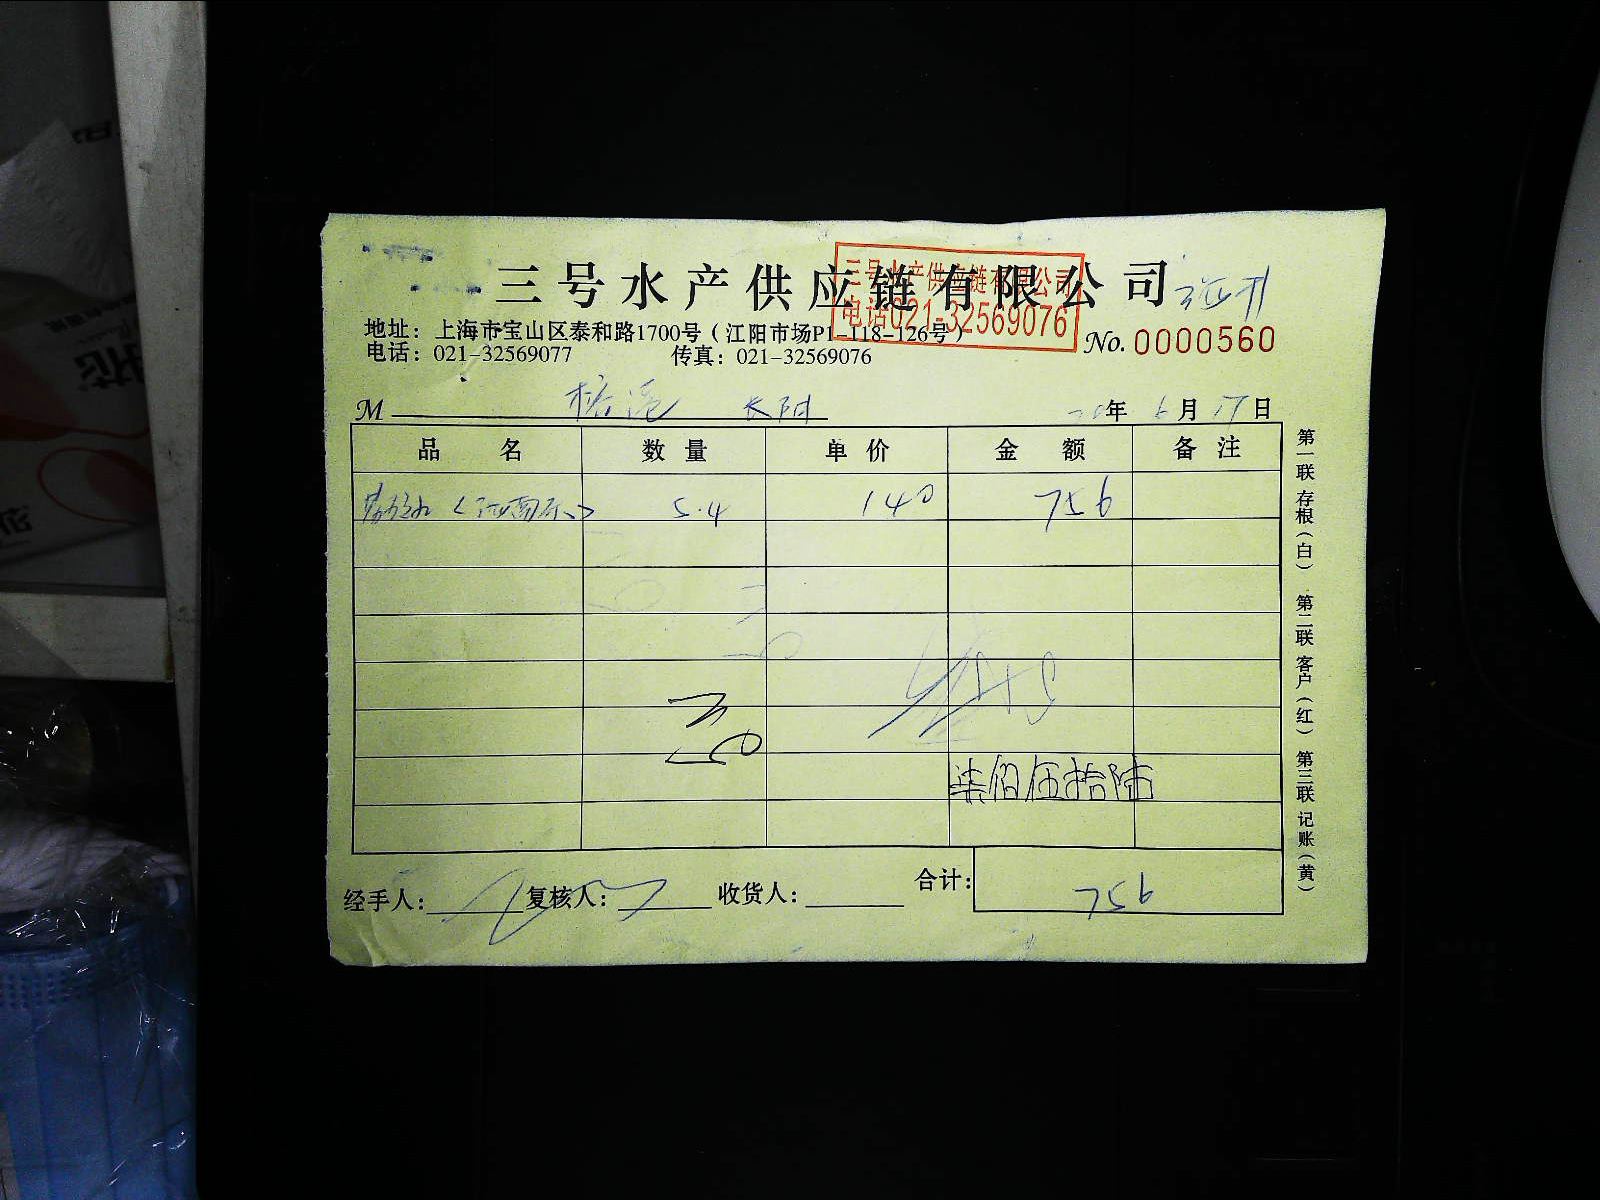 三号水产供应链有限公司
三号水产供应链有限公司
电话021-32569076
地址：上海市宝山区泰和路1700号（江阳市场P1-118-126号）
电话：021-32569077 传真：021-32569076
No. 0000560
M 长阳 20年 6月 17日
品 名 数 量 单 价 金 额 备 注
5.4 140 756
柒佰伍拾陆
经手人： 复核人： 收货人： 合计：756
第一联 存根（白） 第二联 客户（红） 第三联 记账（黄）